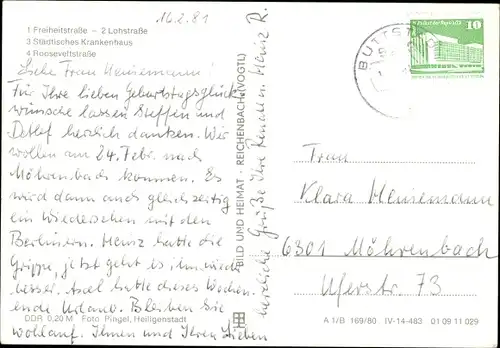 16.2.81
1 Freiheitstraße – 2 Lohstraße
3 Städtisches Krankenhaus
4 Rooseveltstraße
Liebe Frau Heinemann!
Für Ihre lieben Geburtstagsglück-
wünsche lassen Steffen und
Detlef herzlich danken. Wir
wollen am 24. Febr. nach
Möhrenbach kommen. Es
wird dann auch gleichzeitig
ein Wiedersehen mit den
Berlinern. Heinz hatte die
Grippe, jetzt geht es ihm wieder
besser. Axel hatte dieses Wochen-
ende Urlaub. Bleiben Sie
wohlauf. Ihnen und Ihren Lieben
herzliche Grüße Ihre Renate u. Heinz R.
DDR 0,20 M Foto: Pingel, Heiligenstadt
BILD UND HEIMAT · REICHENBACH (VOGTL)
BUTTST
10
Frau
Klara Heinemann
6301 Möhrenbach
Uferstr. 73
A 1/B 169/80 IV-14-483 01 09 11 029